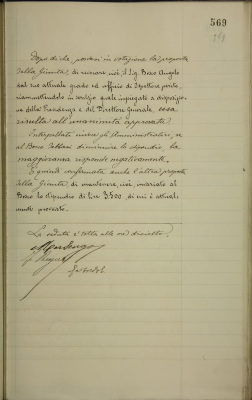 569
Dopo di che, postasi in votazione la proposta
della Giunta, di nominare cioè il Sig. Bosco Angelo
dal suo attuale grado ed ufficio di Ispettore
riammettendolo in servizio quale impiegato a disposizio-
ne della Presidenza e del Direttore Generale, essa
risulta all'unanimità approvata.
Interpellati invece gli Amministratori, se
al Bosco debbasi diminuire lo stipendio, la
maggioranza risponde negativamente.
È quindi confermata anche l'altra proposta
della Giunta, di mantenere, cioè, invariato al
Bosco lo stipendio di Lire 3.500, di cui è attual-
mente provvisto.
La seduta è tolta alle ore diciotto.